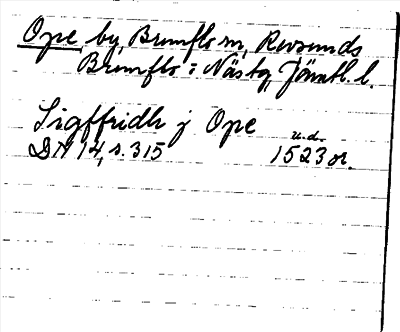 Ope by, Brunflo sn, Revsunds
Brunflo : Näs tg, Jämtl. l.
Sigffridh j Ope
u.d.
DN 14, s. 315 1523 or.